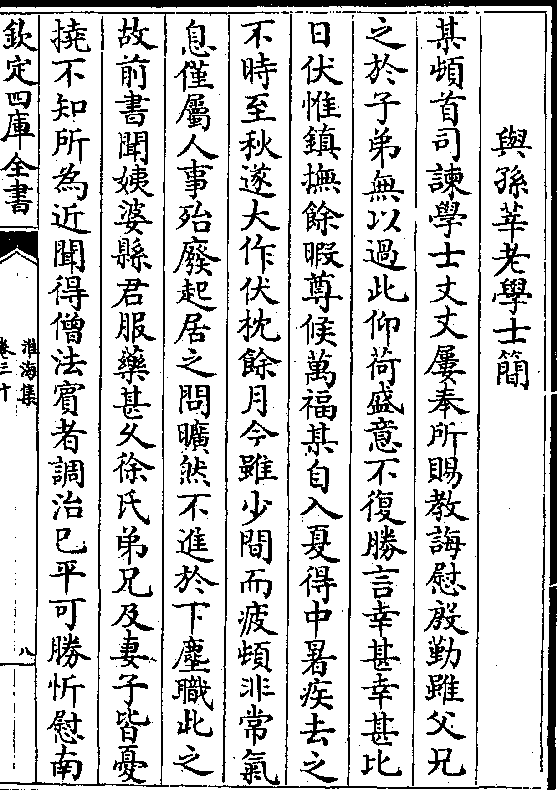 與孫莘老學士簡
某頓首司諫學士丈丈屢奉所賜教誨慰殷勤雖父兄
之於子弟無以過此仰荷盛意不復勝言幸甚幸甚比
日伏惟鎮撫餘暇尊候萬福某自入夏得中暑疾去之
不時至秋遂大作伏枕餘月今雖少間而疲頓非常氣
息僅屬人事殆廢起居之問曠然不進於下塵職此之
故前書聞姨婆縣君服藥甚久徐氏弟兄及妻子皆憂
撓不知所為近聞得僧法賓者調治已平可勝忻慰南
欽定四庫全書
淮海集
卷三十
八